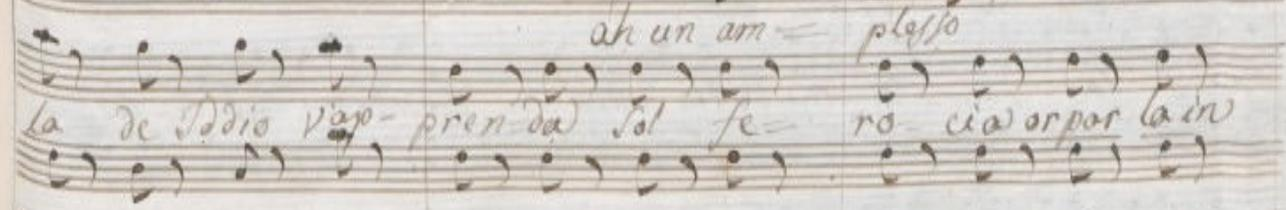 ah un am= plesso
la de Iddio v'ap- pren-da sol fe= ro-cia or por la in